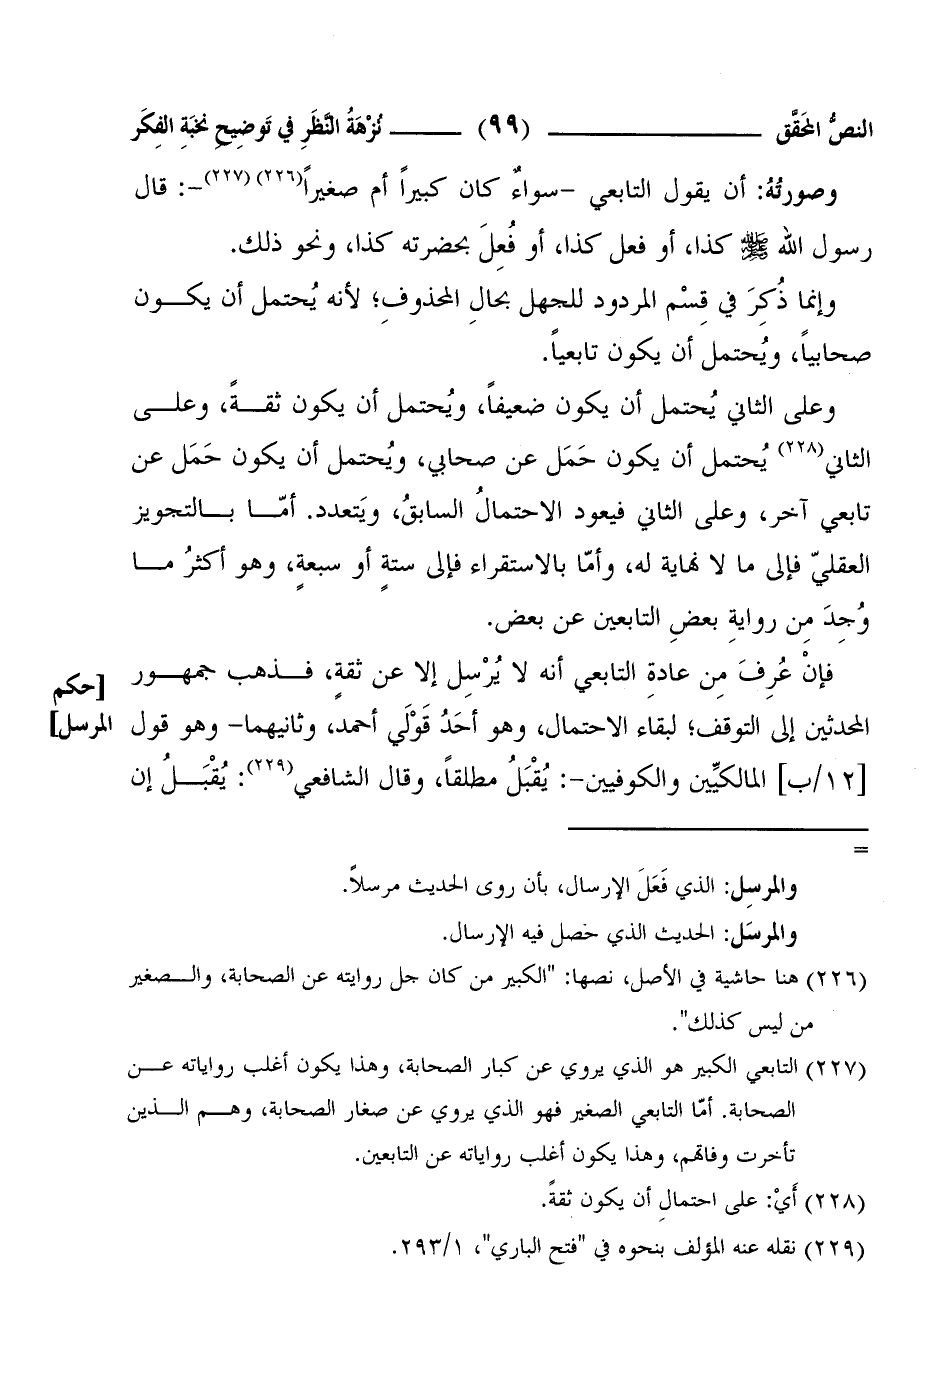 النصُّ المحَقَّق ـــــــــــ (٩٩) ـــــــــــ نُزْهَةُ النَّظَرِ في تَوضيحِ نخبَةِ الفِكَر
وصورتُهُ: أن يقول التابعي -سواءٌ كان كبيراً أم صغيراً(٢٢٦)(٢٢٧)-: قال
رسول الله ﷺ كذا، أو فعل كذا، أو فُعِلَ بحضرته كذا، ونحو ذلك.
وإنما ذُكِرَ في قِسْم المردود للجهل بحالِ المحذوف؛ لأنه يُحتمل أن يكون
صحابياً، ويُحتمل أن يكون تابعياً.
وعلى الثاني يُحتمل أن يكون ضعيفاً، ويُحتمل أن يكون ثقةً، وعلى
الثاني(٢٢٨) يُحتمل أن يكون حَمَل عن صحابي، ويُحتمل أن يكون حَمَل عن
تابعي آخر، وعلى الثاني فيعود الاحتمالُ السابقُ، ويَتعدد. أمّا بالتجويز
العقليّ فإلى ما لا نهاية له، وأمّا بالاستقراء فإلى ستةٍ أو سبعةٍ، وهو أكثرُ ما
وُجِدَ مِن روايةِ بعضِ التابعين عن بعض.
فإنْ عُرِفَ مِن عادةِ التابعي أنه لا يُرْسِل إلا عن ثقةٍ، فذهب جمهور
[حكم
المحدثين إلى التوقف؛ لبقاء الاحتمال، وهو أحَدُ قَوْلَي أحمد، وثانيهما- وهو قول
المرسل]
[١٢/ب] المالكيِّين والكوفيين-: يُقْبَلُ مطلقاً، وقال الشافعي(٢٢٩): يُقْبَلُ إن
=
والمرسِل: الذي فَعَلَ الإرسال، بأن روى الحديث مرسلاً.
والمرسَل: الحديث الذي حصل فيه الإرسال.
(٢٢٦) هنا حاشية في الأصل، نصها: "الكبير من كان جل روايته عن الصحابة، والصغير
من ليس كذلك".
(٢٢٧) التابعي الكبير هو الذي يروي عن كبار الصحابة، وهذا يكون أغلب رواياته عن
الصحابة. أمّا التابعي الصغير فهو الذي يروي عن صغار الصحابة، وهم الذين
تأخرت وفاتهم، وهذا يكون أغلب رواياته عن التابعين.
(٢٢٨) أَيْ: على احتمالِ أن يكون ثقةً.
(٢٢٩) نقله عنه المؤلف بنحوه في "فتح الباري"، ٢٩٣/١.